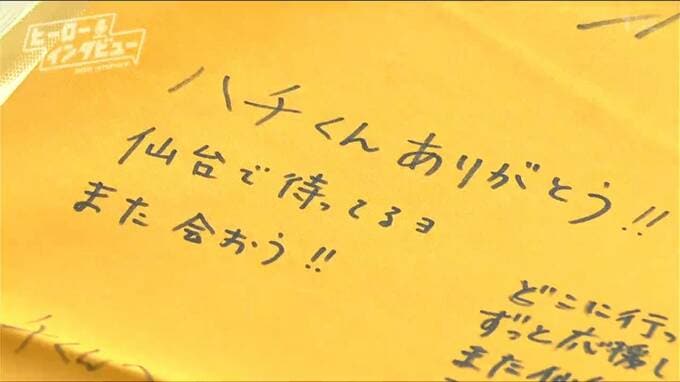 ヒーロー
インタビュー
ハチくん ありがとう!!
仙台で待ってるヨ
また 会おう!!
どこに行っ
ずっと応援し
また仙